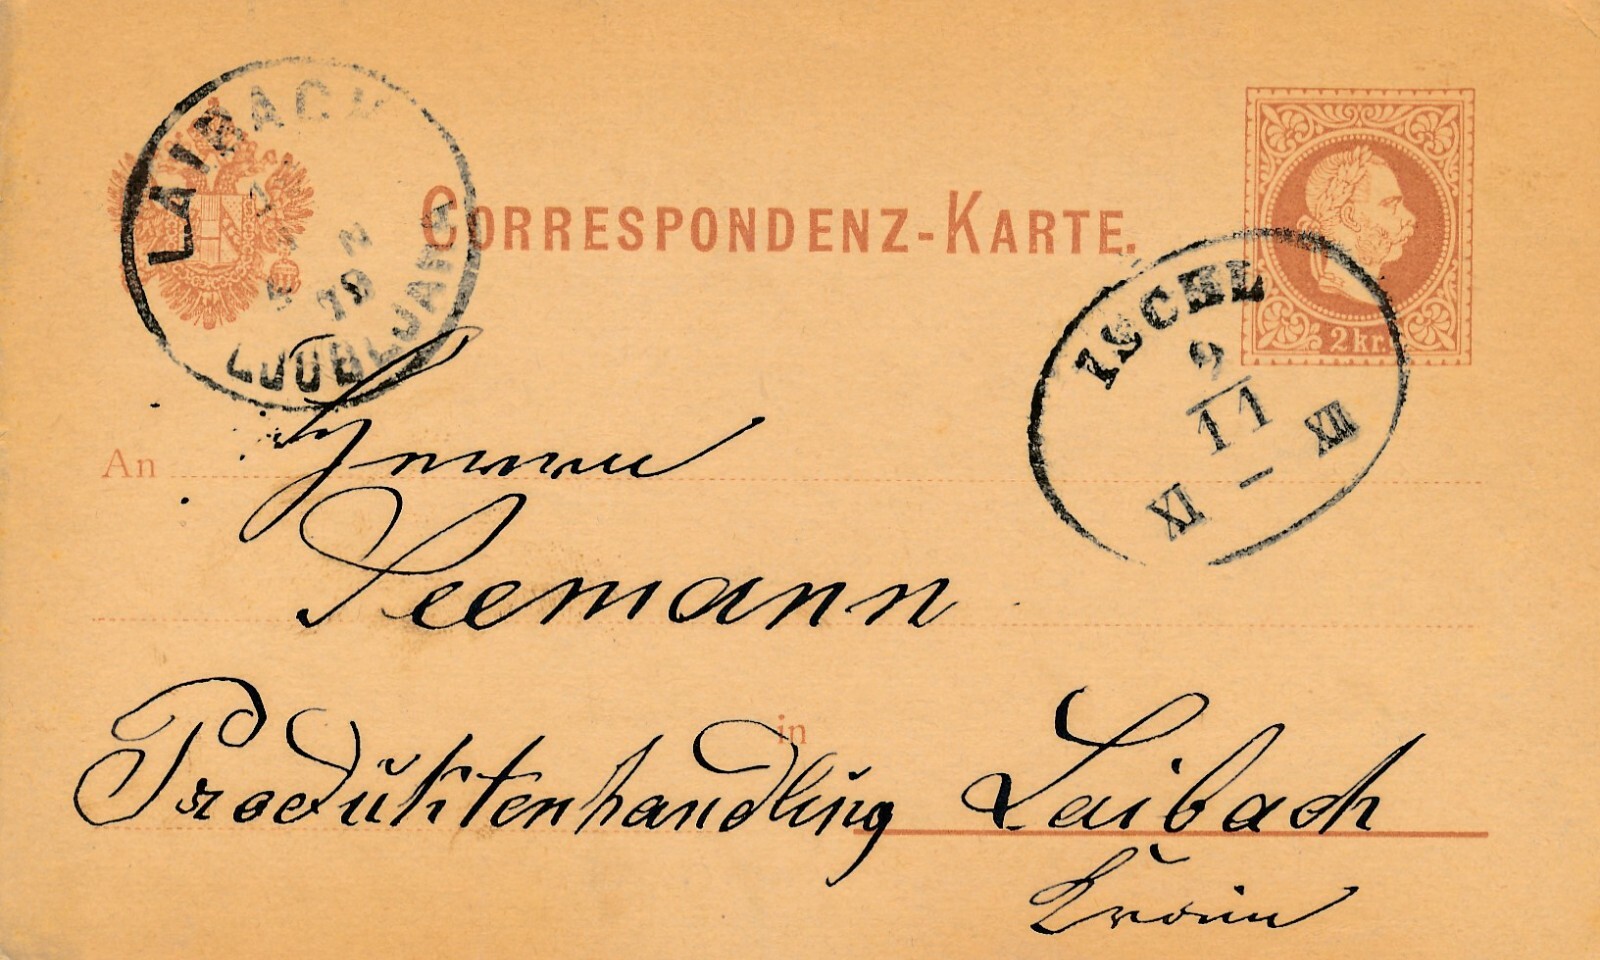 LAIBACH
79
LJUBLJANA
CORRESPONDENZ-KARTE.
2 kr.
ISCHL
9
11
XI — XII
An Herrn
Seemann
in
Produktenhandlung Laibach
Krain